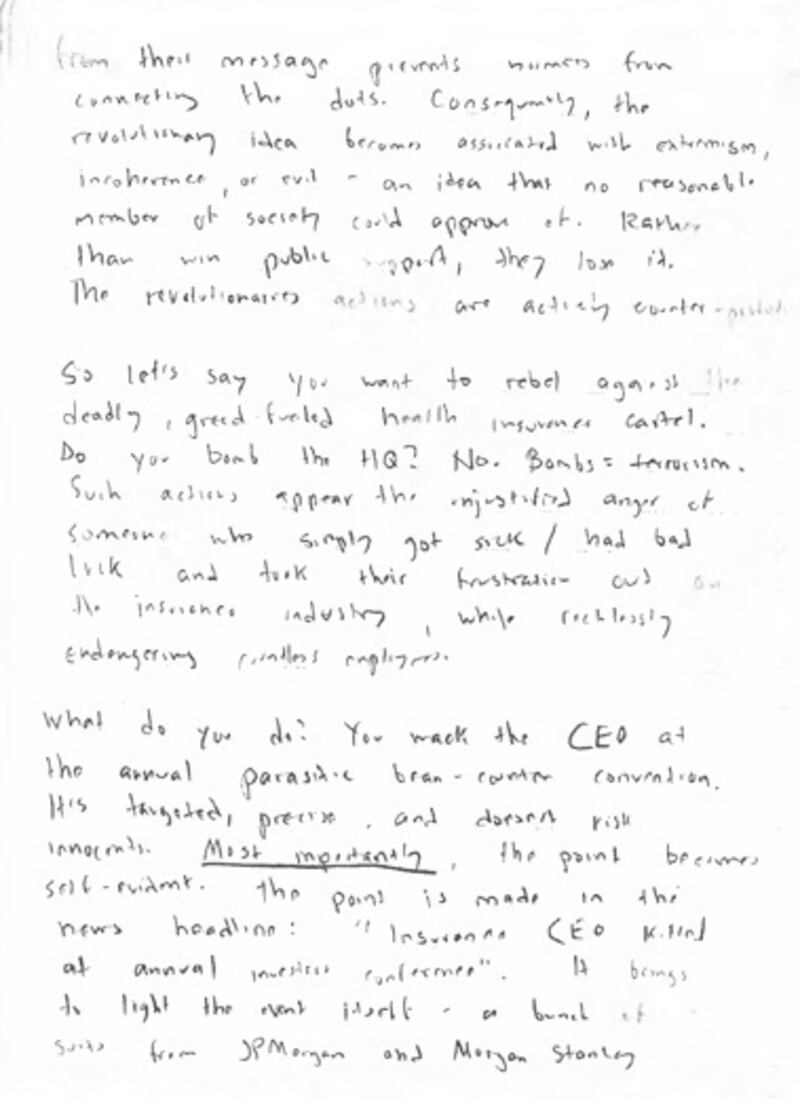 from their message prevents normies from
connecting the dots. Consequently, the
revolutionary idea becomes associated with extremism,
incoherence, or evil - an idea that no reasonable
member of society could approve of. Rather
than win public support, they lose it.
The revolutionaries actions are actively counter-
So let's say you want to rebel against the
deadly, greed-fueled health insurance cartel.
Do you bomb the HQ? No. Bombs = terrorism.
Such actions appear the unjustified anger of
someone who simply got sick / had bad
luck and took their frustration out on
the insurance industry, while recklessly
endangering countless employees.
What do you do? You wack the CEO at
the annual parasitic bean-counter convention.
It's targeted, precise, and doesn't risk
innocents. Most importantly, the point becomes
self-evident. The point is made in the
news headline: "Insurance CEO killed
at annual investors conference". It brings
to light the event itself - a bunch of
suits from JPMorgan and Morgan Stanley